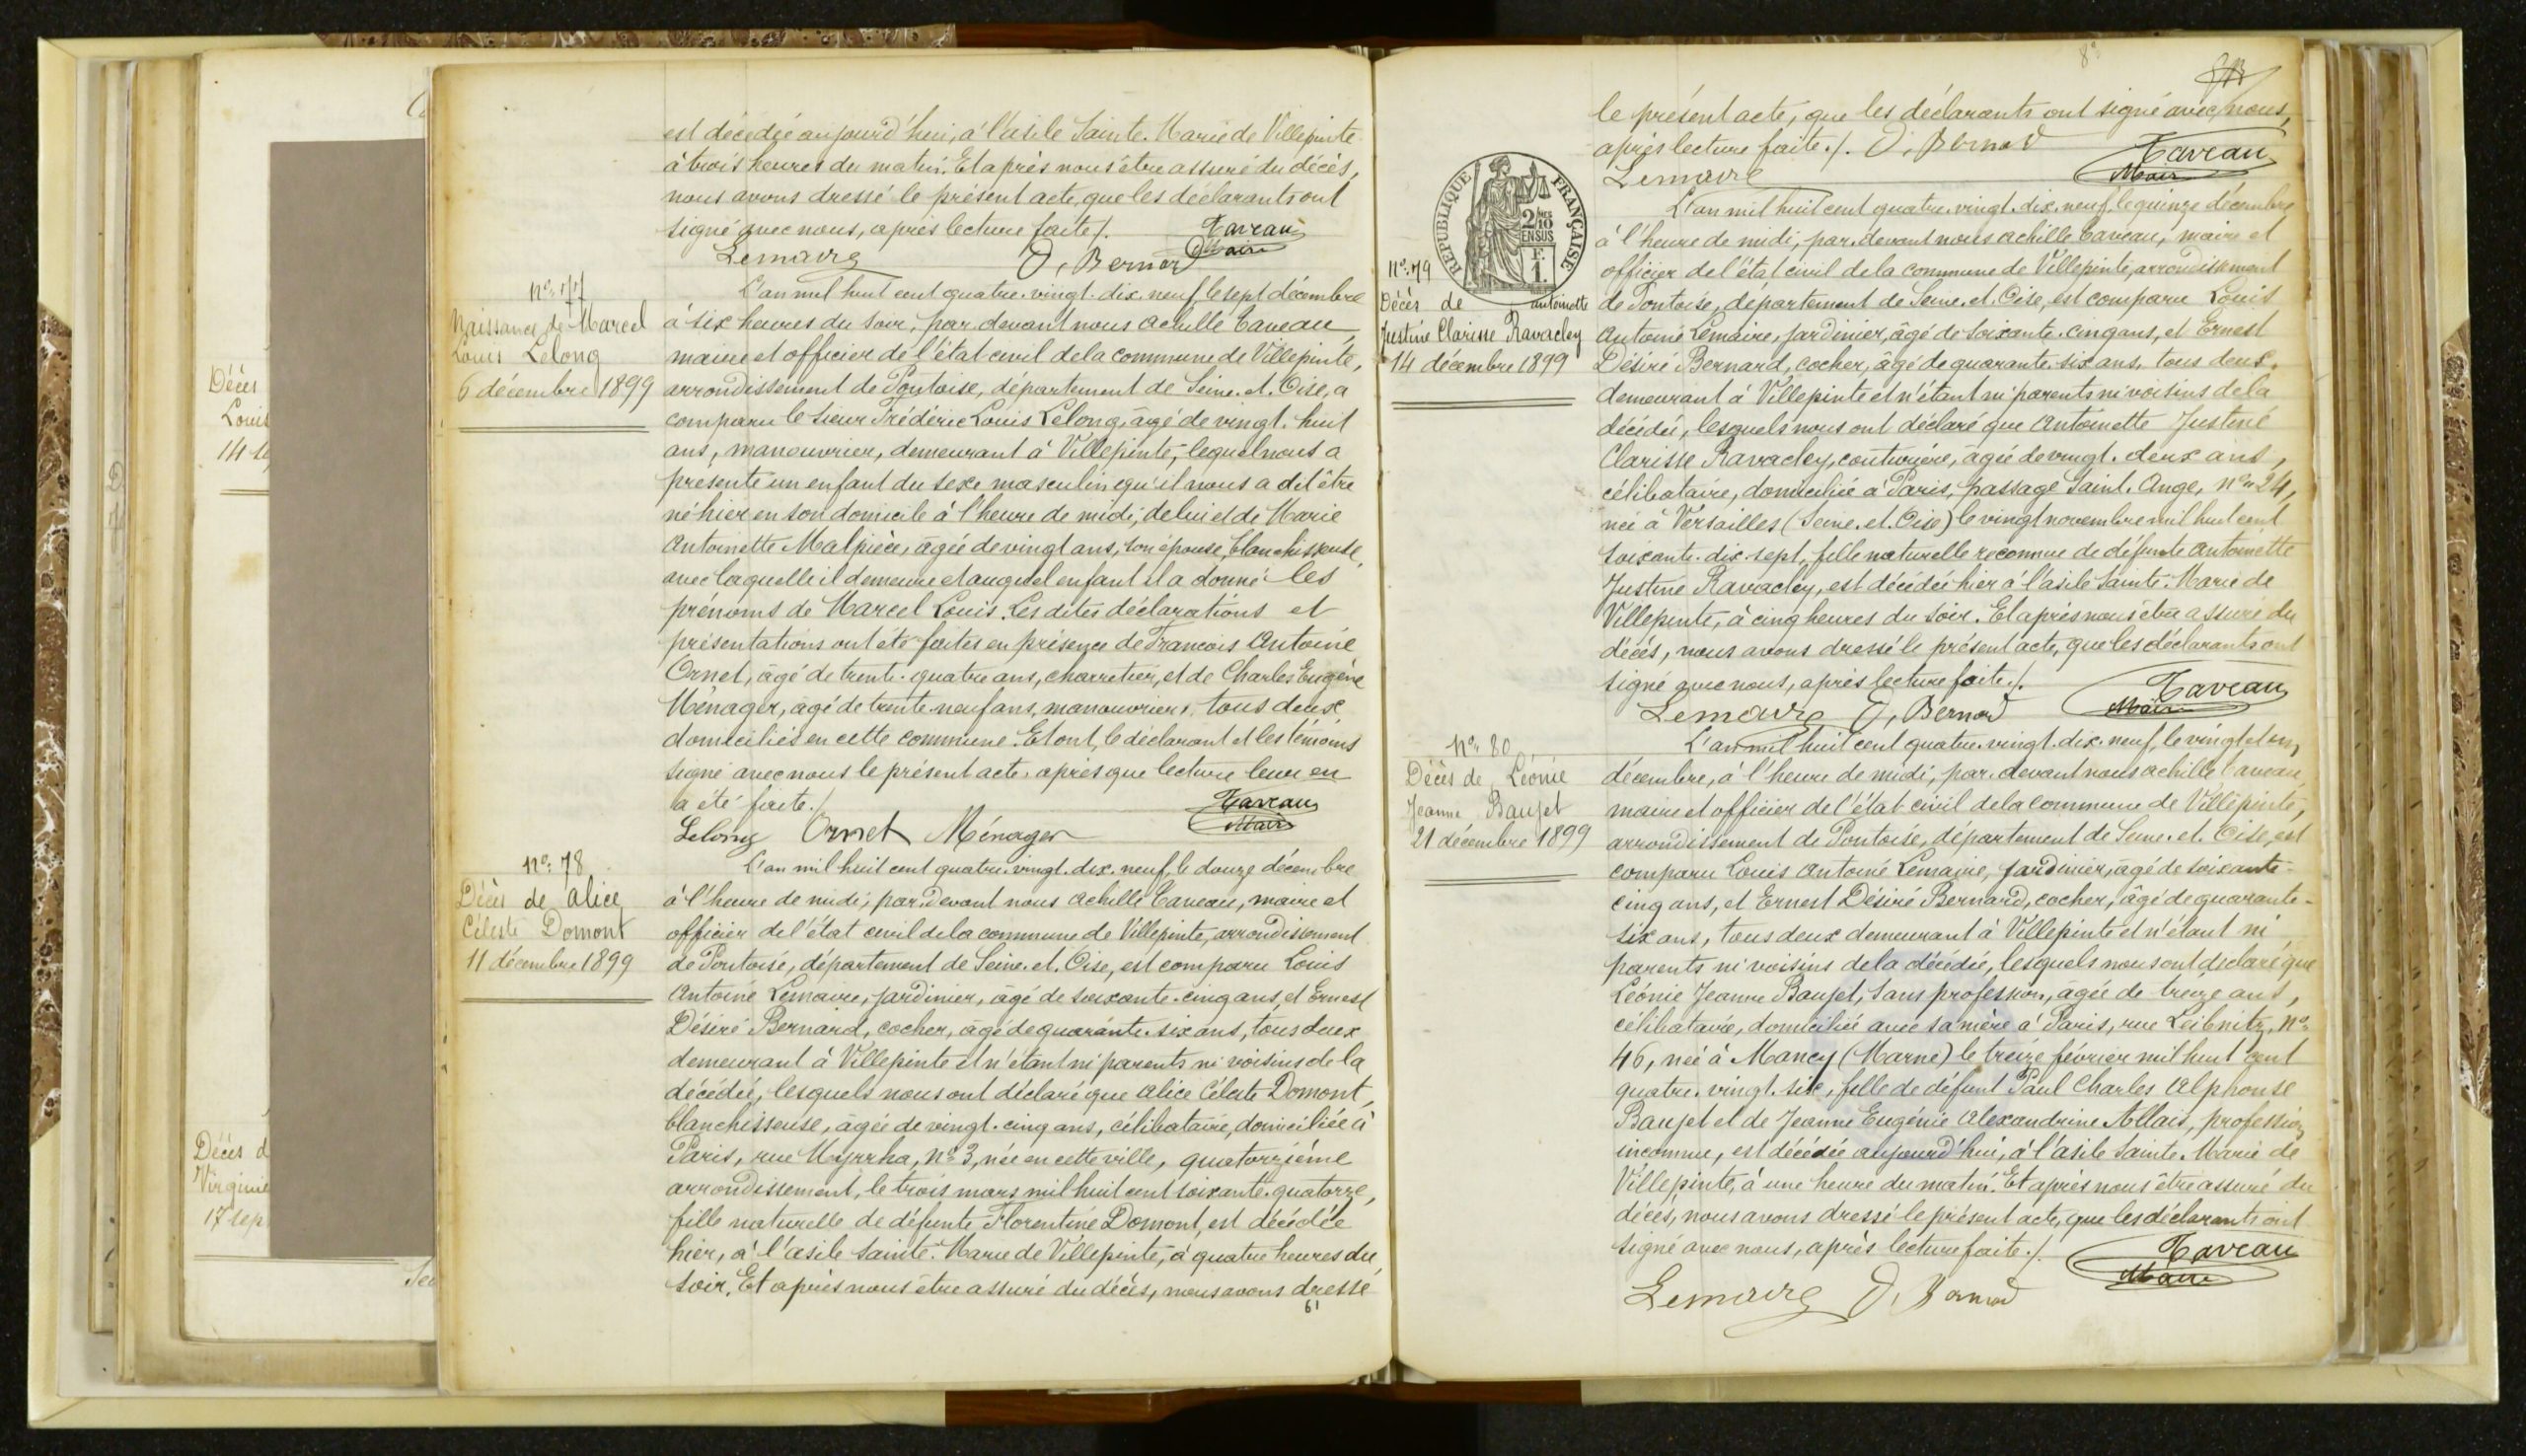 est décédée aujourd'hui, à l'asile Sainte. Marie de Villepinte
à trois heures du matin. Et après nous être assuré du décès,
nous avons dressé le présent acte, que les déclarants ont
signé avec nous, après lecture faite./.
Taveau
Maire
Lemaire
D. Bernard
No. 77
Naissance de Marcel
Louis Lelong
6 décembre 1899
L'an mil huit cent quatre. vingt. dix. neuf, le sept décembre
à six heures du soir, par. devant nous Achille Taveau,
maire et officier de l'état civil de la commune de Villepinte,
arrondissement de Pontoise, département de Seine. et. Oise, a
comparu le sieur Frédéric Louis Lelong, âgé de vingt. huit
ans, manouvrier, demeurant à Villepinte, lequel nous a
présenté un enfant du sexe masculin qu'il nous a dit être
né hier en son domicile à l'heure de midi, de lui et de Marie
Antoinette Malpièce, âgée de vingt ans, son épouse, blanchisseuse,
avec laquelle il demeure et auquel enfant il a donné les
prénoms de Marcel Louis. Les dites déclarations et
présentations ont été faites en présence de François Antoine
Ornet, âgé de trente. quatre ans, charretier, et de Charles Eugène
Ménager, âgé de trente. neuf ans, manouvrier, tous deux
domiciliés en cette commune. Et ont, le déclarant et les témoins
signé avec nous le présent acte, après que lecture leur en
a été faite./.
Taveau
Maire
Lelong Ornet Ménager
No. 78
Décès de Alice
Céleste Domont
11 décembre 1899
L'an mil huit cent quatre. vingt. dix. neuf, le douze décembre
à l'heure de midi, par. devant nous Achille Taveau, maire et
officier de l'état civil de la commune de Villepinte, arrondissement
de Pontoise, département de Seine. et. Oise, est comparu Louis
Antoine Lemaire, jardinier, âgé de soixante. cinq ans, et Ernest
Désiré Bernard, cocher, âgé de quarante. six ans, tous deux
demeurant à Villepinte et n'étant ni parents ni voisins de la
décédée, lesquels nous ont déclaré que Alice Céleste Domont,
blanchisseuse, âgée de vingt. cinq ans, célibataire, domiciliée à
Paris, rue Myrrha, No. 3, née en cette ville, quatorzième
arrondissement, le trois mars mil huit cent soixante. quatorze,
fille naturelle de défunte Florentine Domont, est décédée
hier, à l'asile Sainte. Marie de Villepinte, à quatre heures du
soir. Et après nous être assuré du décès, nous avons dressé
61
Décès
Louis
14
Décès d
Virginie
17 sep
8
le présent acte, que les déclarants ont signé avec nous,
après lecture faite./. D. Bernard
Taveau
Maire
Lemaire
RÉPUBLIQUE FRANÇAISE
2/10
EN SUS
F.
1
No. 79
Décès de Antoinette
Justine Clarisse Ravacley
14 décembre 1899
L'an mil huit cent quatre. vingt. dix. neuf, le quinze décembre
à l'heure de midi, par. devant nous Achille Taveau, maire et
officier de l'état civil de la commune de Villepinte, arrondissement
de Pontoise, département de Seine. et. Oise, est comparu Louis
Antoine Lemaire, jardinier, âgé de soixante. cinq ans, et Ernest
Désiré Bernard, cocher, âgé de quarante. six ans, tous deux
demeurant à Villepinte et n'étant ni parents ni voisins de la
décédée, lesquels nous ont déclaré que Antoinette Justine
Clarisse Ravacley, couturière, âgée de vingt. deux ans,
célibataire, domiciliée à Paris, passage Saint. Ange, No. 24,
née à Versailles (Seine. et. Oise) le vingt novembre mil huit cent
soixante. dix. sept, fille naturelle reconnue de défunte Antoinette
Justine Ravacley, est décédée hier à l'asile Sainte. Marie de
Villepinte, à cinq heures du soir. Et après nous être assuré du
décès, nous avons dressé le présent acte, que les déclarants ont
signé avec nous, après lecture faite./.
Taveau
Maire
Lemaire D. Bernard
No. 80
Décès de Léonie
Jeanne Baujet
21 décembre 1899
L'an mil huit cent quatre. vingt. dix. neuf, le vingt et un
décembre, à l'heure de midi, par. devant nous Achille Taveau
maire et officier de l'état civil de la commune de Villepinte,
arrondissement de Pontoise, département de Seine. et. Oise, est
comparu Louis Antoine Lemaire, jardinier, âgé de soixante-
cinq ans, et Ernest Désiré Bernard, cocher, âgé de quarante-
six ans, tous deux demeurant à Villepinte et n'étant ni
parents ni voisins de la décédée, lesquels nous ont déclaré que
Léonie Jeanne Baujet, sans profession, âgée de treize ans,
célibataire, domiciliée avec sa mère à Paris, rue Leibnitz, No.
46, née à Mancy (Marne) le treize février mil huit cent
quatre. vingt. six, fille de défunt Paul Charles Alphonse
Baujet et de Jeanne Eugénie Alexandrine Allais, profession
inconnue, est décédée aujourd'hui, à l'asile Sainte. Marie de
Villepinte, à une heure du matin. Et après nous être assuré du
décès, nous avons dressé le présent acte, que les déclarants ont
signé avec nous, après lecture faite./.
Taveau
Maire
Lemaire D. Bernard